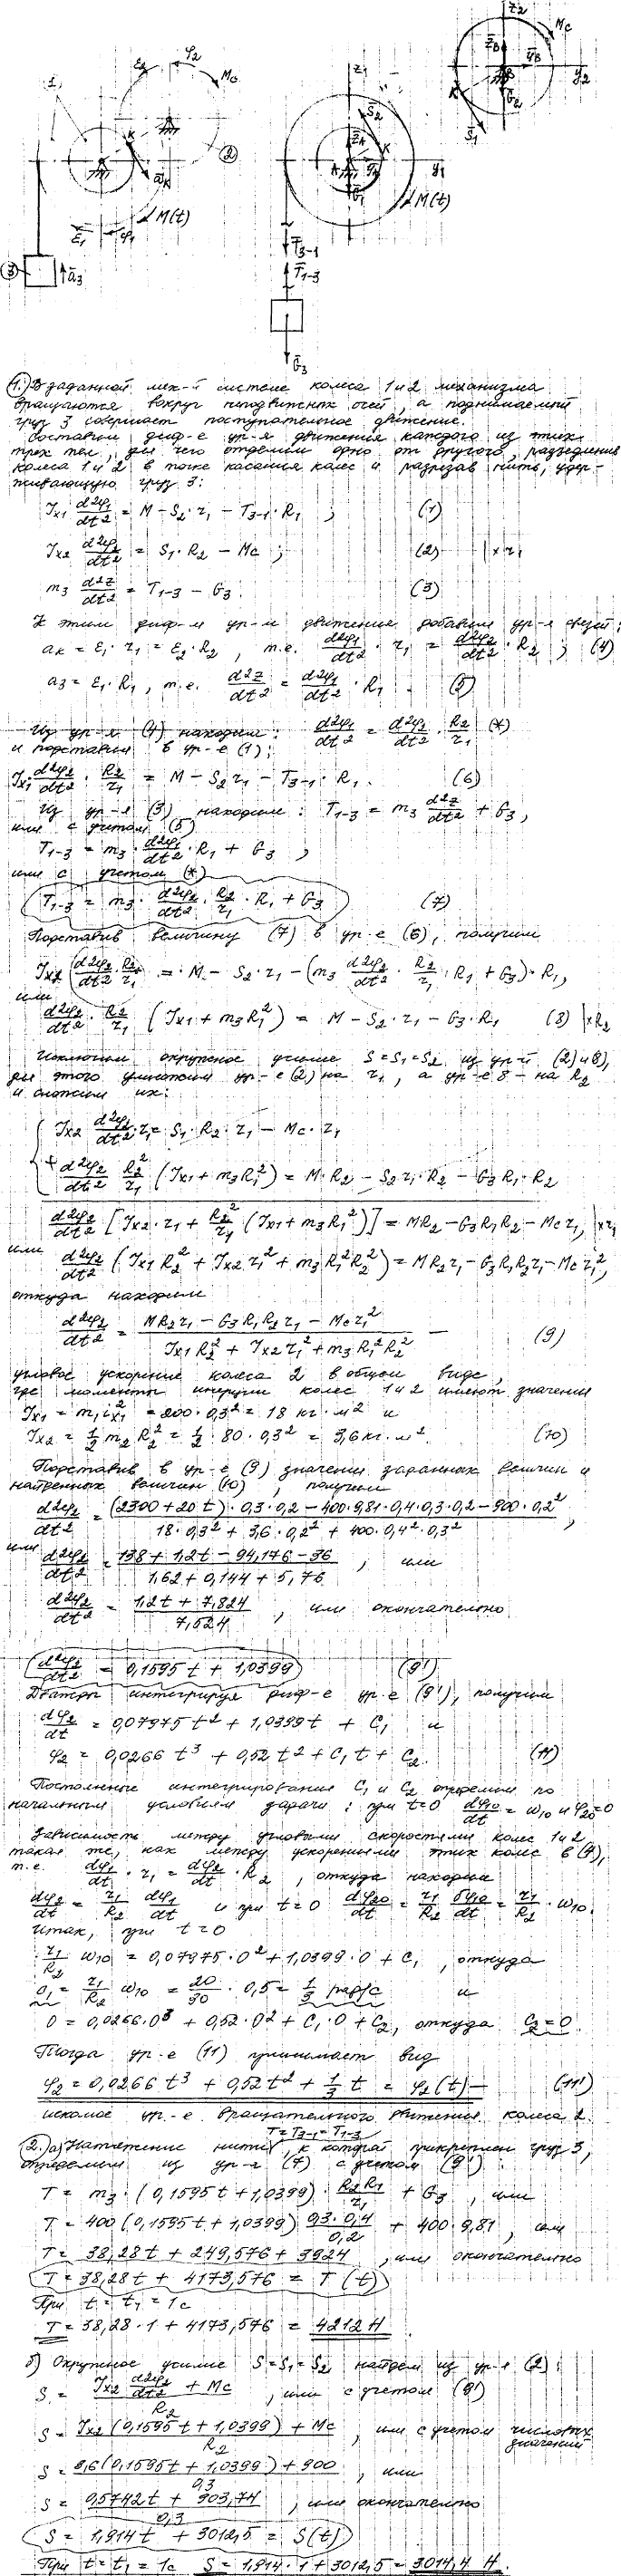 z2
Mc
φ2
Mc
z1
y2
S2
S1
y1
M(t)
M(t)
T3-1
T1-3
3
a3
G3
1. В заданной мех-й системе колеса 1 и 2 механизма
вращаются вокруг неподвижных осей, а поднимаемый
груз 3 совершает поступательное движение.
Составим диф-е ур-я движения каждого из этих
трех тел, для чего отделим одно от другого, разъединив
колеса 1 и 2 в точке касания колес и разрезав нить, удер-
живающую груз 3:
Jx1 d²φ1/dt² = M − S2·r1 − T3-1·R1 ; (1)
Jx2 d²φ2/dt² = S1·R2 − Mc ; (2) |×r1
m3 d²z/dt² = T1-3 − G3. (3)
К этим диф-м ур-м движения добавим ур-я связей:
aк = ε1·r1 = ε2·R2 , т.е. d²φ1/dt²·r1 = d²φ2/dt²·R2 ; (4)
a3 = ε1·R1, т.е. d²z/dt² = d²φ1/dt²·R1. (5)
Из ур-я (4) находим: d²φ1/dt² = d²φ2/dt²·R2/r1 (*)
и подставим в ур-е (1):
Jx1 d²φ2/dt²·R2/r1 = M − S2 r1 − T3-1·R1. (6)
Из ур-я (3) находим: T1-3 = m3 d²z/dt² + G3,
или с учетом (5)
T1-3 = m3·d²φ1/dt²·R1 + G3 ,
или с учетом (*)
T1-3 = m3·d²φ2/dt²·R2/r1·R1 + G3 (7)
Подставив величину (7) в ур-е (6), получим
Jx1 d²φ2/dt² R2/r1 = M − S2·r1 − (m3 d²φ2/dt²·R2/r1·R1 + G3)·R1,
или
d²φ2/dt²·R2/r1 (Jx1 + m3R1²) = M − S2·r1 − G3·R1 (8) |×R2
Исключим окружное усилие S=S1=S2 из ур-й (2) и 8),
для этого умножим ур-е (2) на r1, а ур-е 8 – на R2
и сложим их:
Jx2 d²φ2/dt²·r1 = S1·R2·r1 − Mc·r1
+ d²φ2/dt² R2²/r1 (Jx1 + m3R1²) = M·R2 − S2r1·R2 − G3R1·R2
d²φ2/dt² [Jx2·r1 + R2²/r1 (Jx1 + m3R1²)] = MR2 − G3R1R2 − Mc r1, |×r1
или d²φ2/dt² (Jx1R2² + Jx2r1² + m3R1²R2²) = MR2r1 − G3R1R2r1 − Mc r1²,
откуда находим
d²φ2/dt² = (MR2r1 − G3R1R2r1 − Mcr1²)/(Jx1R2² + Jx2r1² + m3R1²R2²) − (9)
угловое ускорение колеса 2 в общем виде,
где моменты инерции колес 1 и 2 имеют значения
Jx1 = m1 i²x1 = 200·0,3² = 18 кг·м² и
Jx2 = 1/2 m2R2² = 1/2·80·0,3² = 3,6 кг·м². (10)
Подставив в ур-е (9) значения заданных величин и
найденных величин (10), получим
d²φ2/dt² = ((2300+20t)·0,3·0,2 − 400·9,81·0,4·0,3·0,2 − 900·0,2²)/(18·0,3² + 3,6·0,2² + 400·0,4²·0,3²) ,
или
d²φ2/dt² = (138 + 1,2t − 94,176 − 36)/(1,62 + 0,144 + 5,76) ; или
d²φ2/dt² = (1,2t + 7,824)/7,524 , или окончательно
d²φ2/dt² = 0,1595t + 1,0399 (9')
Дважды интегрируя диф-е ур-е (9'), получим
dφ2/dt = 0,07975t² + 1,0399t + C1 и
φ2 = 0,0266t³ + 0,52t² + C1t + C2. (11)
Постоянные интегрирования C1 и C2 определим по
начальным условиям задачи: при t=0 dφ10/dt = ω10 и φ20=0
Зависимость между угловыми скоростями колес 1 и 2
такая же, как между ускорениями этих колес в (4),
т.е. dφ1/dt·r1 = dφ2/dt·R2 , откуда находим
dφ2/dt = r1/R2 dφ1/dt и при t=0 dφ20/dt = r1/R2 dφ10/dt = r1/R2·ω10.
Итак, при t=0
r1/R2 ω10 = 0,07975·0² + 1,0399·0 + C1 , откуда
C1 = r1/R2 ω10 = 20/30·0,5 = 1/3 рад/с и
0 = 0,0266·0³ + 0,52·0² + C1·0 + C2, откуда C2=0.
Тогда ур-е (11) принимает вид
φ2 = 0,0266t³ + 0,52t² + 1/3 t = φ2(t) − (11')
искомое ур-е вращательного движения колеса 2.
T=T3-1=T1-3
2. а) Натяжение нити, к которой прикреплен груз 3,
определим из ур-я (7) с учетом (9'):
T = m3·(0,1595t + 1,0399)·R2R1/r1 + G3 , или
T = 400(0,1595t + 1,0399) 0,3·0,4/0,2 + 400·9,81, или
T = 38,28t + 249,576 + 3924 , или окончательно
T = 38,28t + 4173,576 = T(t)
При t = t1 = 1с
T = 38,28·1 + 4173,576 = 4212 Н
б) Окружное усилие S=S1=S2 найдем из ур-я (2):
S = (Jx2 d²φ2/dt² + Mc)/R2 , или с учетом (9')
S = (Jx2(0,1595t + 1,0399) + Mc)/R2 , или с учетом числовых
значений
S = (3,6(0,1595t + 1,0399) + 900)/0,3 , или
S = (0,5742t + 903,74)/0,3 , или окончательно
S = 1,914t + 3012,5 = S(t)
При t = t1 = 1с S = 1,914·1 + 3012,5 = 3014,4 Н.